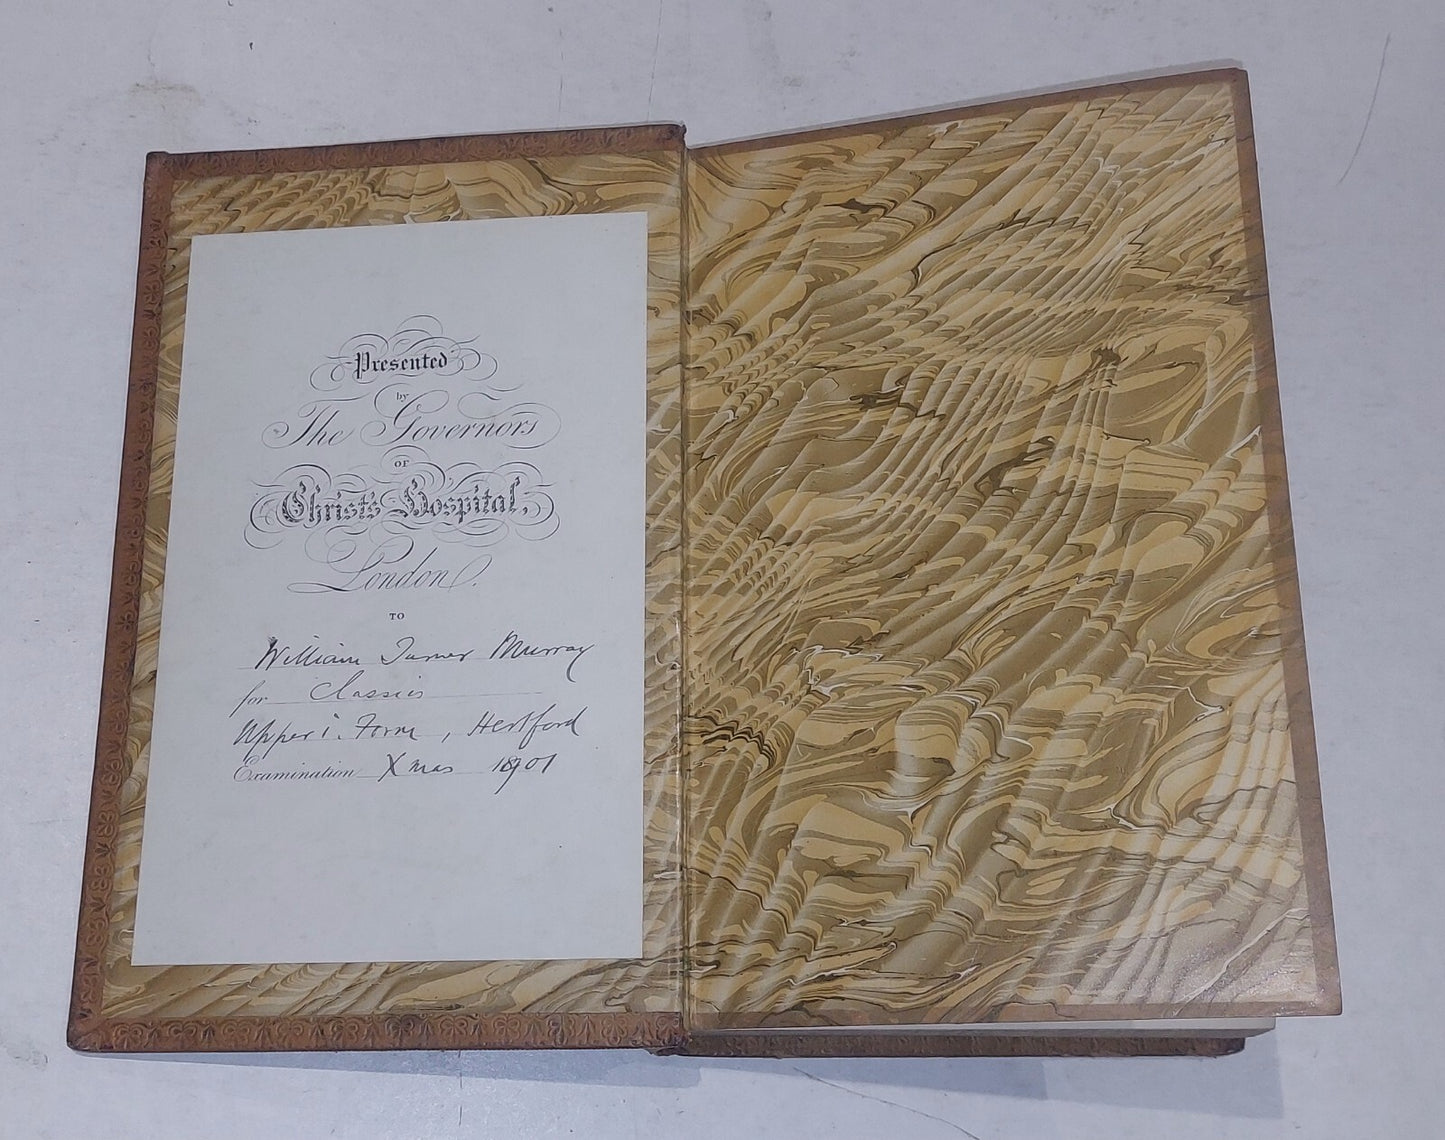 Presented
by
The Governors
OF
Christ's Hospital,
London.
TO
William Turner Murray
for Classics
Upper i. Form, Hertford
Examination Xmas 1901